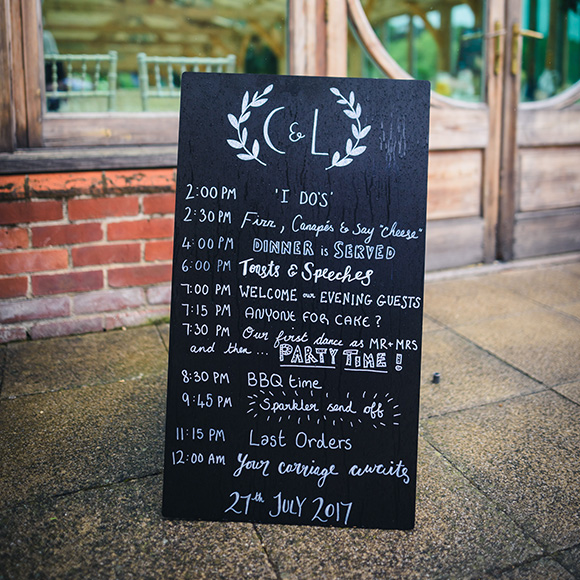 C & L
2:00 PM 'I DO'S'
2:30 PM Fizz, Canapés & Say "cheese"
4:00 PM DINNER is SERVED
6:00 PM Toasts & Speeches
7:00 PM WELCOME our EVENING GUESTS
7:15 PM ANYONE FOR CAKE?
7:30 PM Our first dance as MR + MRS
and then ... PARTY TIME!
8:30 PM BBQ time
9:45 PM Sparkler send off
11:15 PM Last Orders
12:00 AM Your carriage awaits
27th JULY 2017